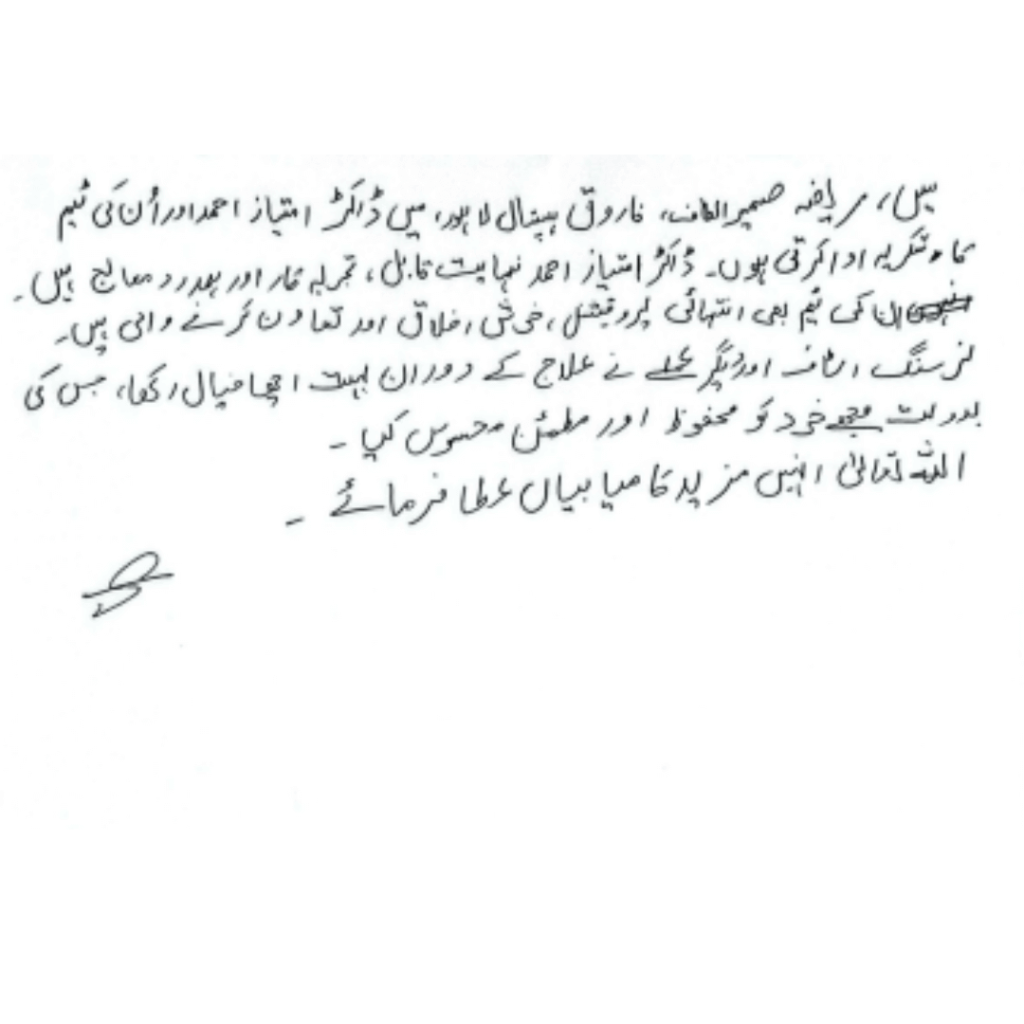 میں، مریضہ ضمیر الطاف، فاروق ہسپتال لاہور، میں ڈاکٹر امتیاز احمد اور اُن کی ٹیم
کا شکریہ ادا کرتی ہوں۔ ڈاکٹر امتیاز احمد نہایت قابل، تجربہ کار اور ہمدرد معالج ہیں۔
ان کی ٹیم بھی انتہائی پروفیشنل، خوش اخلاق اور تعاون کرنے والی ہیں۔
نرسنگ اسٹاف اور دیگر عملے نے علاج کے دوران بہت اچھا خیال رکھا، جس کی
بدولت مجھے خود کو محفوظ اور مطمئن محسوس کیا۔
اللہ تعالیٰ انہیں مزید کامیابیاں عطا فرمائے۔